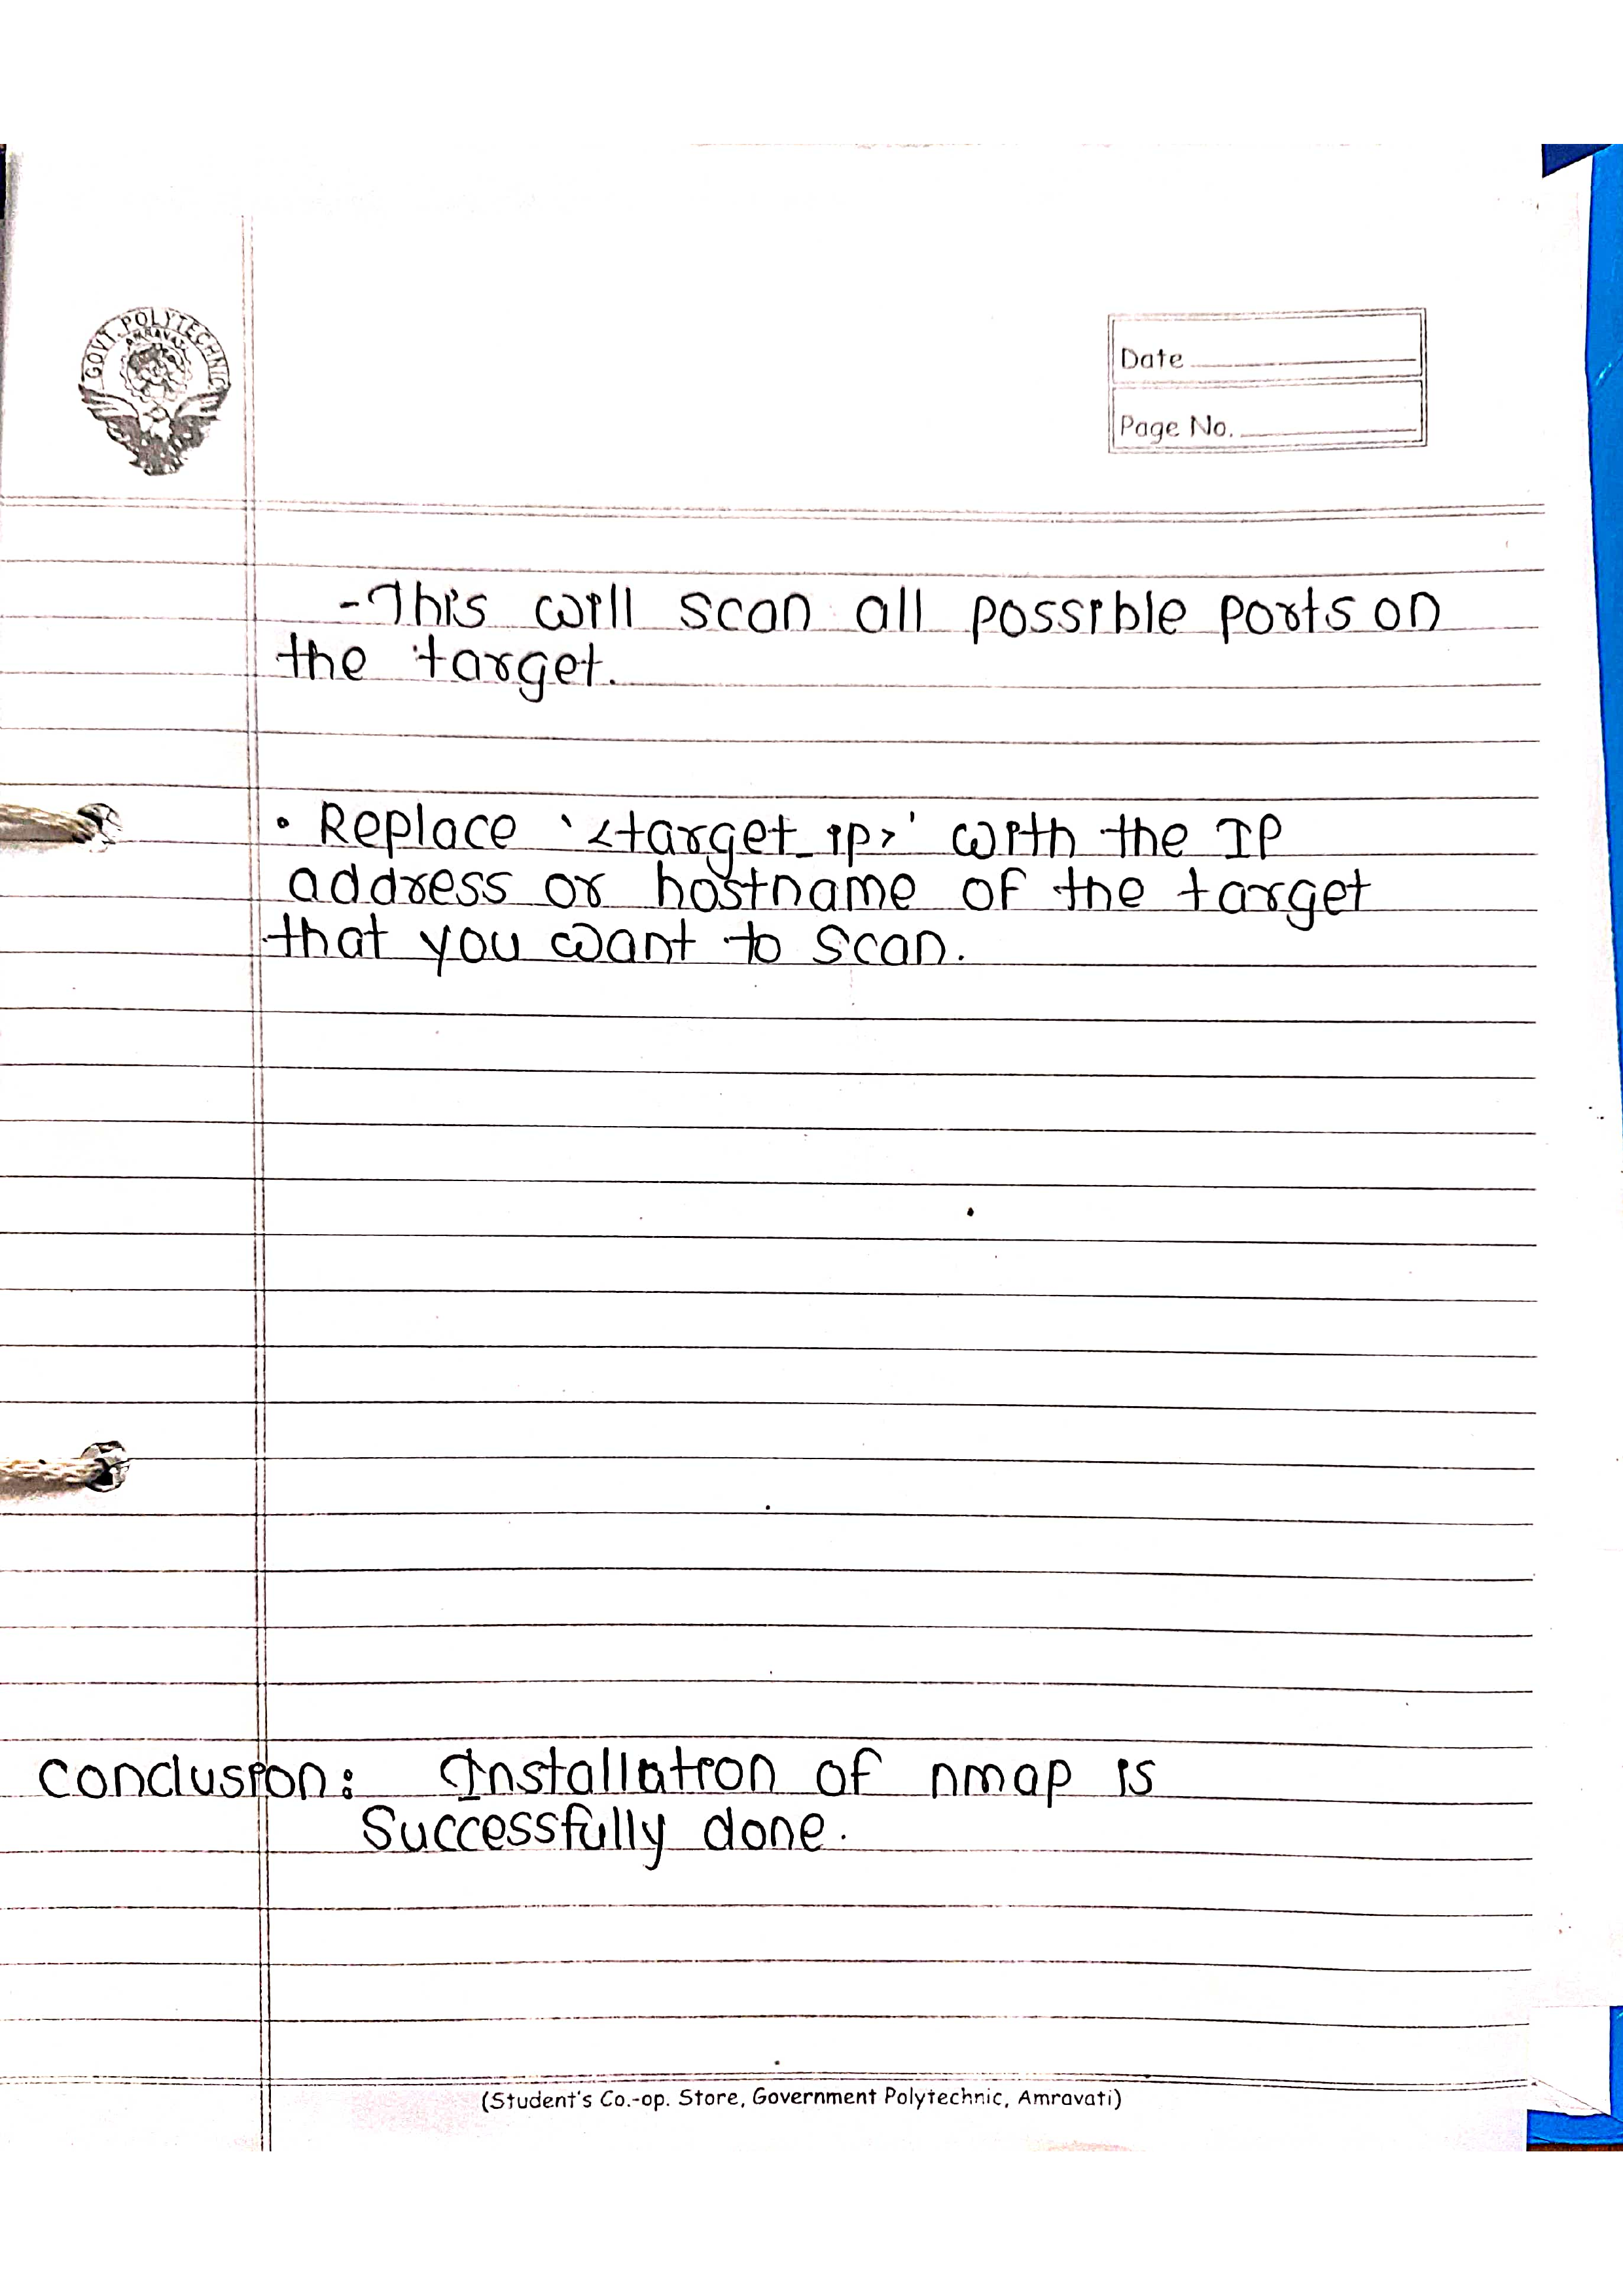 GOVT. POLYTECHNIC
AMRAVATI
Date
Page No.
-This will scan all possible ports on
the target.
• Replace '<target_ip>' with the IP
address or hostname of the target
that you want to scan.
Conclusion: Installation of nmap is
Successfully done.
(Student's Co.-op. Store, Government Polytechnic, Amravati)